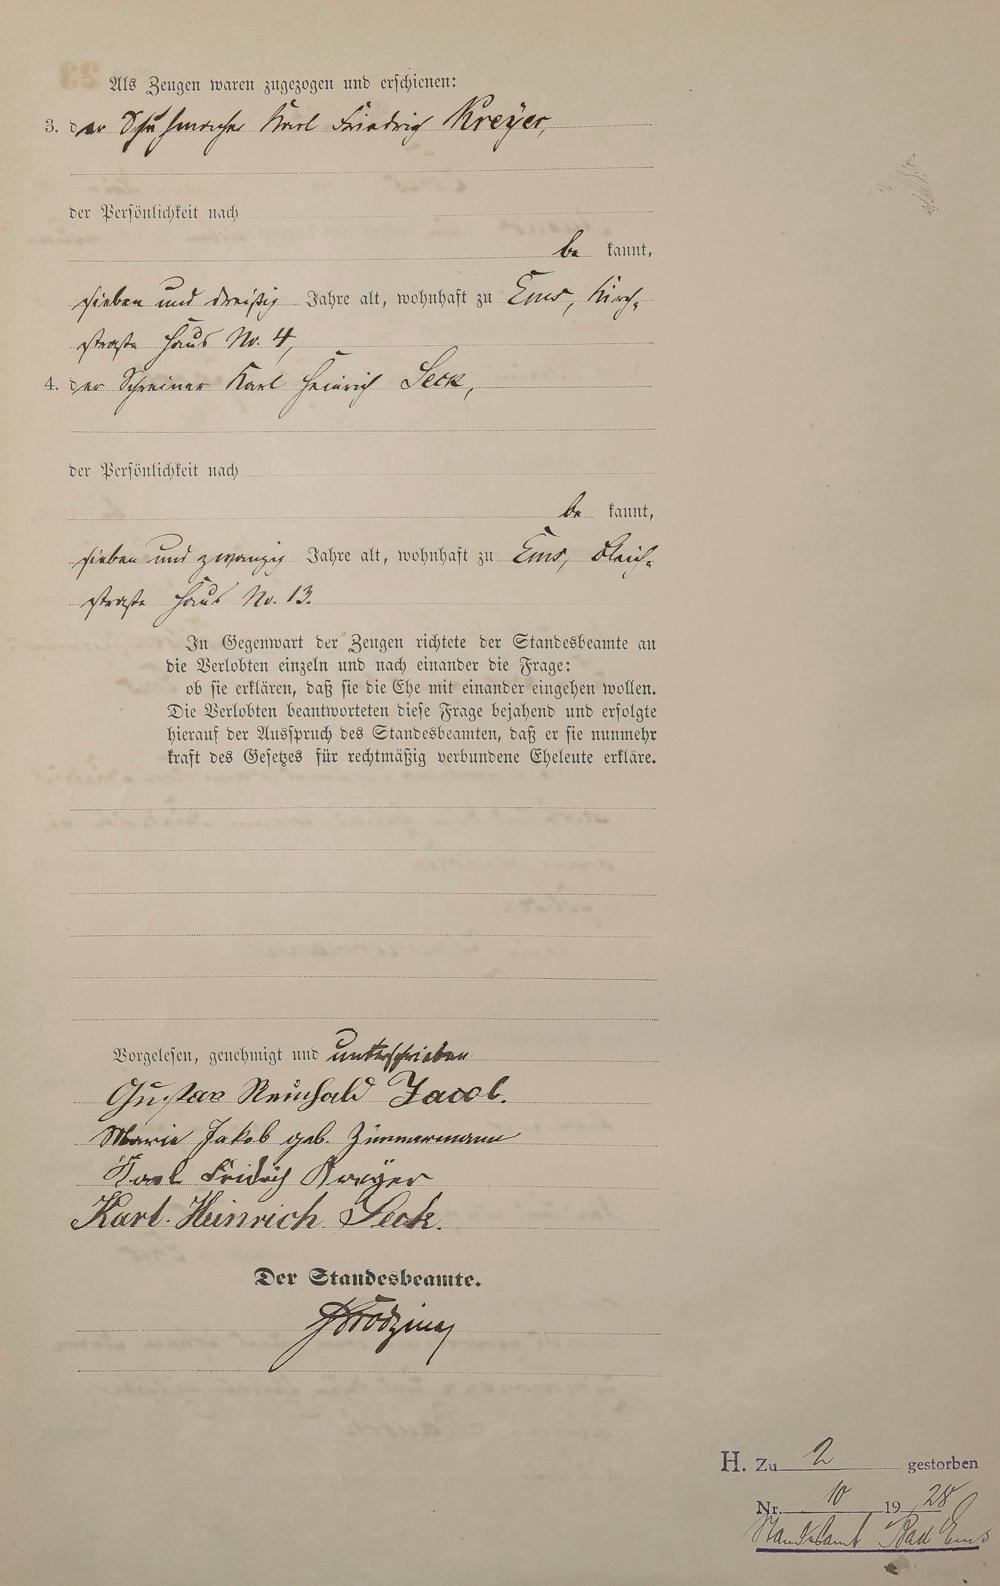 Als Zeugen waren zugezogen und erschienen:
3. der Schuhmacher Karl Friedrich Kreyer,
der Persönlichkeit nach
be kannt,
sieben und dreißig Jahre alt, wohnhaft zu Ems, Kirch-
straße Haus No. 4,
4. der Schreiner Karl Heinrich Seck,
der Persönlichkeit nach
be kannt,
sieben und zwanzig Jahre alt, wohnhaft zu Ems, Bleich-
straße Haus No. 13.
In Gegenwart der Zeugen richtete der Standesbeamte an
die Verlobten einzeln und nach einander die Frage:
ob sie erklären, daß sie die Ehe mit einander eingehen wollen.
Die Verlobten beantworteten diese Frage bejahend und erfolgte
hierauf der Ausspruch des Standesbeamten, daß er sie nunmehr
kraft des Gesetzes für rechtmäßig verbundene Eheleute erkläre.
Vorgelesen, genehmigt und unterschrieben
Gustav Reinhold Jacob.
Marie Jakob geb. Zimmermann
Karl Fridrich Kreyer
Karl Heinrich Seck.
Der Standesbeamte.
H. Zu 2 gestorben
Nr. 10 19 28
Standesamt Bad Ems